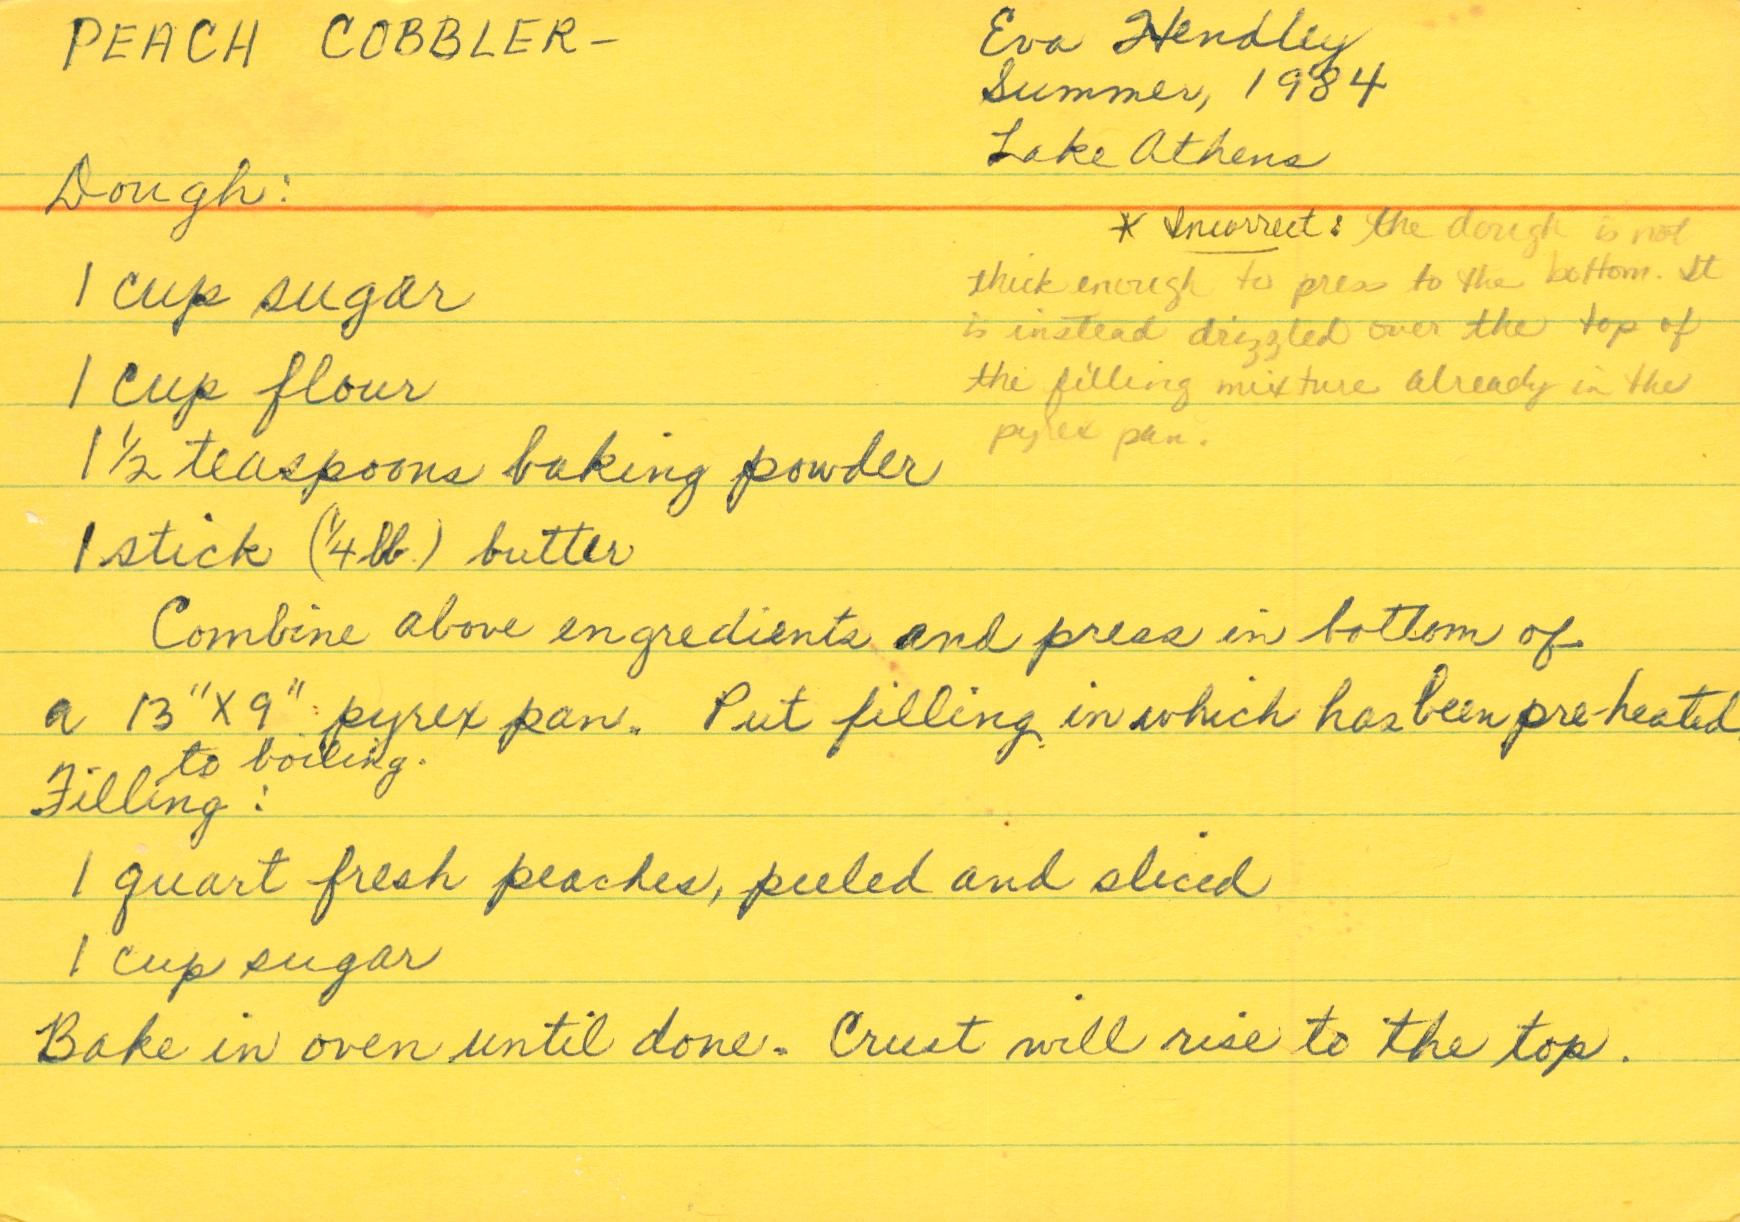 PEACH COBBLER-
Eva Hendley
Summer, 1984
Lake Athens
Dough:
* Incorrect: the dough is not
thick enough to press to the bottom. It
is instead drizzled over the top of
the filling mixture already in the
pyrex pan.
1 cup sugar
1 cup flour
1 ½ teaspoons baking powder
1 stick (¼ lb.) butter
Combine above engredients and press in bottom of
a 13" X 9" pyrex pan. Put filling in which has been pre-heated
to boiling.
Filling:
1 quart fresh peaches, peeled and sliced
1 cup sugar
Bake in oven until done. Crust will rise to the top.